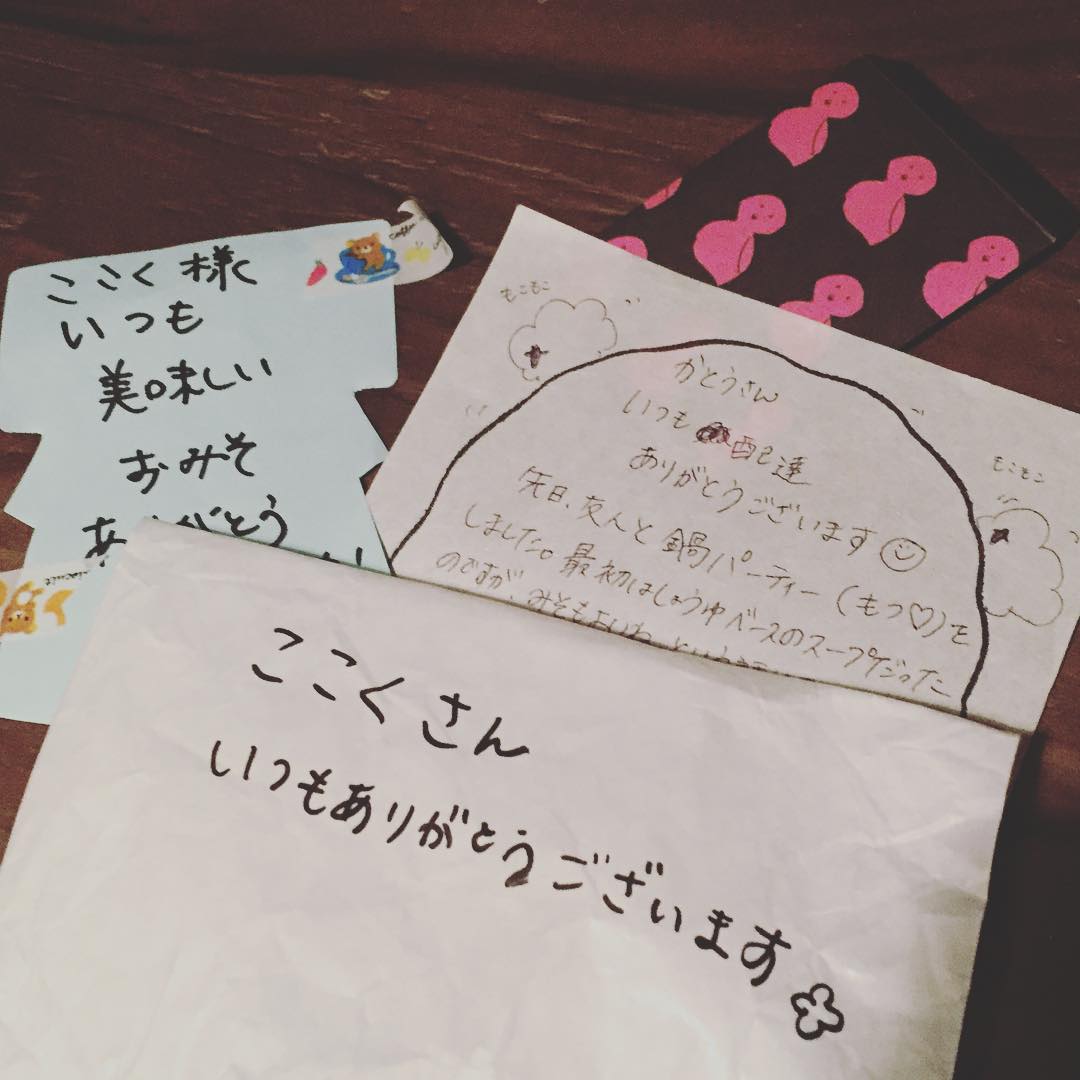 ここく 様
いつも
美味しい
おみそ
ありがとう
もこもこ
かとうさん
いつも 配達
ありがとうございます
先日、友人と鍋パーティー (もつ♡)を
しました。最初はしょうゆベースのスープだった
のですが、みそもよいね
もこもこ
ここく さん
いつもありがとうございます